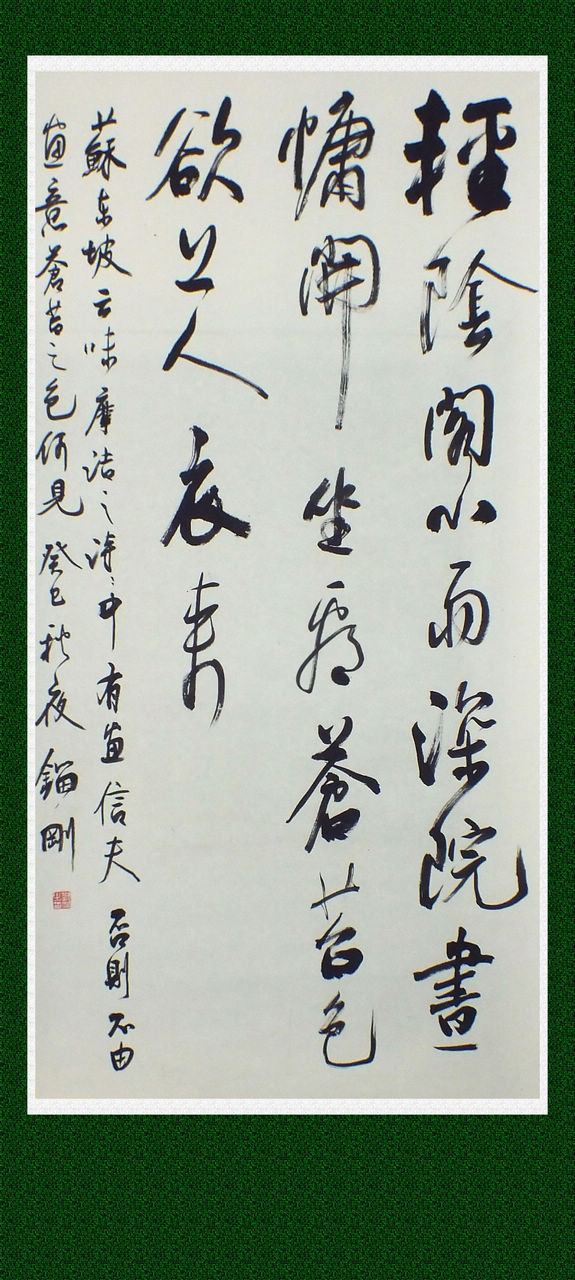 輕陰閣小雨深院晝
慵開坐看蒼苔色
欲上人衣來
蘇東坡云味摩詰之詩〻中有畫信夫 否則不由
畫意蒼苔之色何見 癸巳秋夜 剛